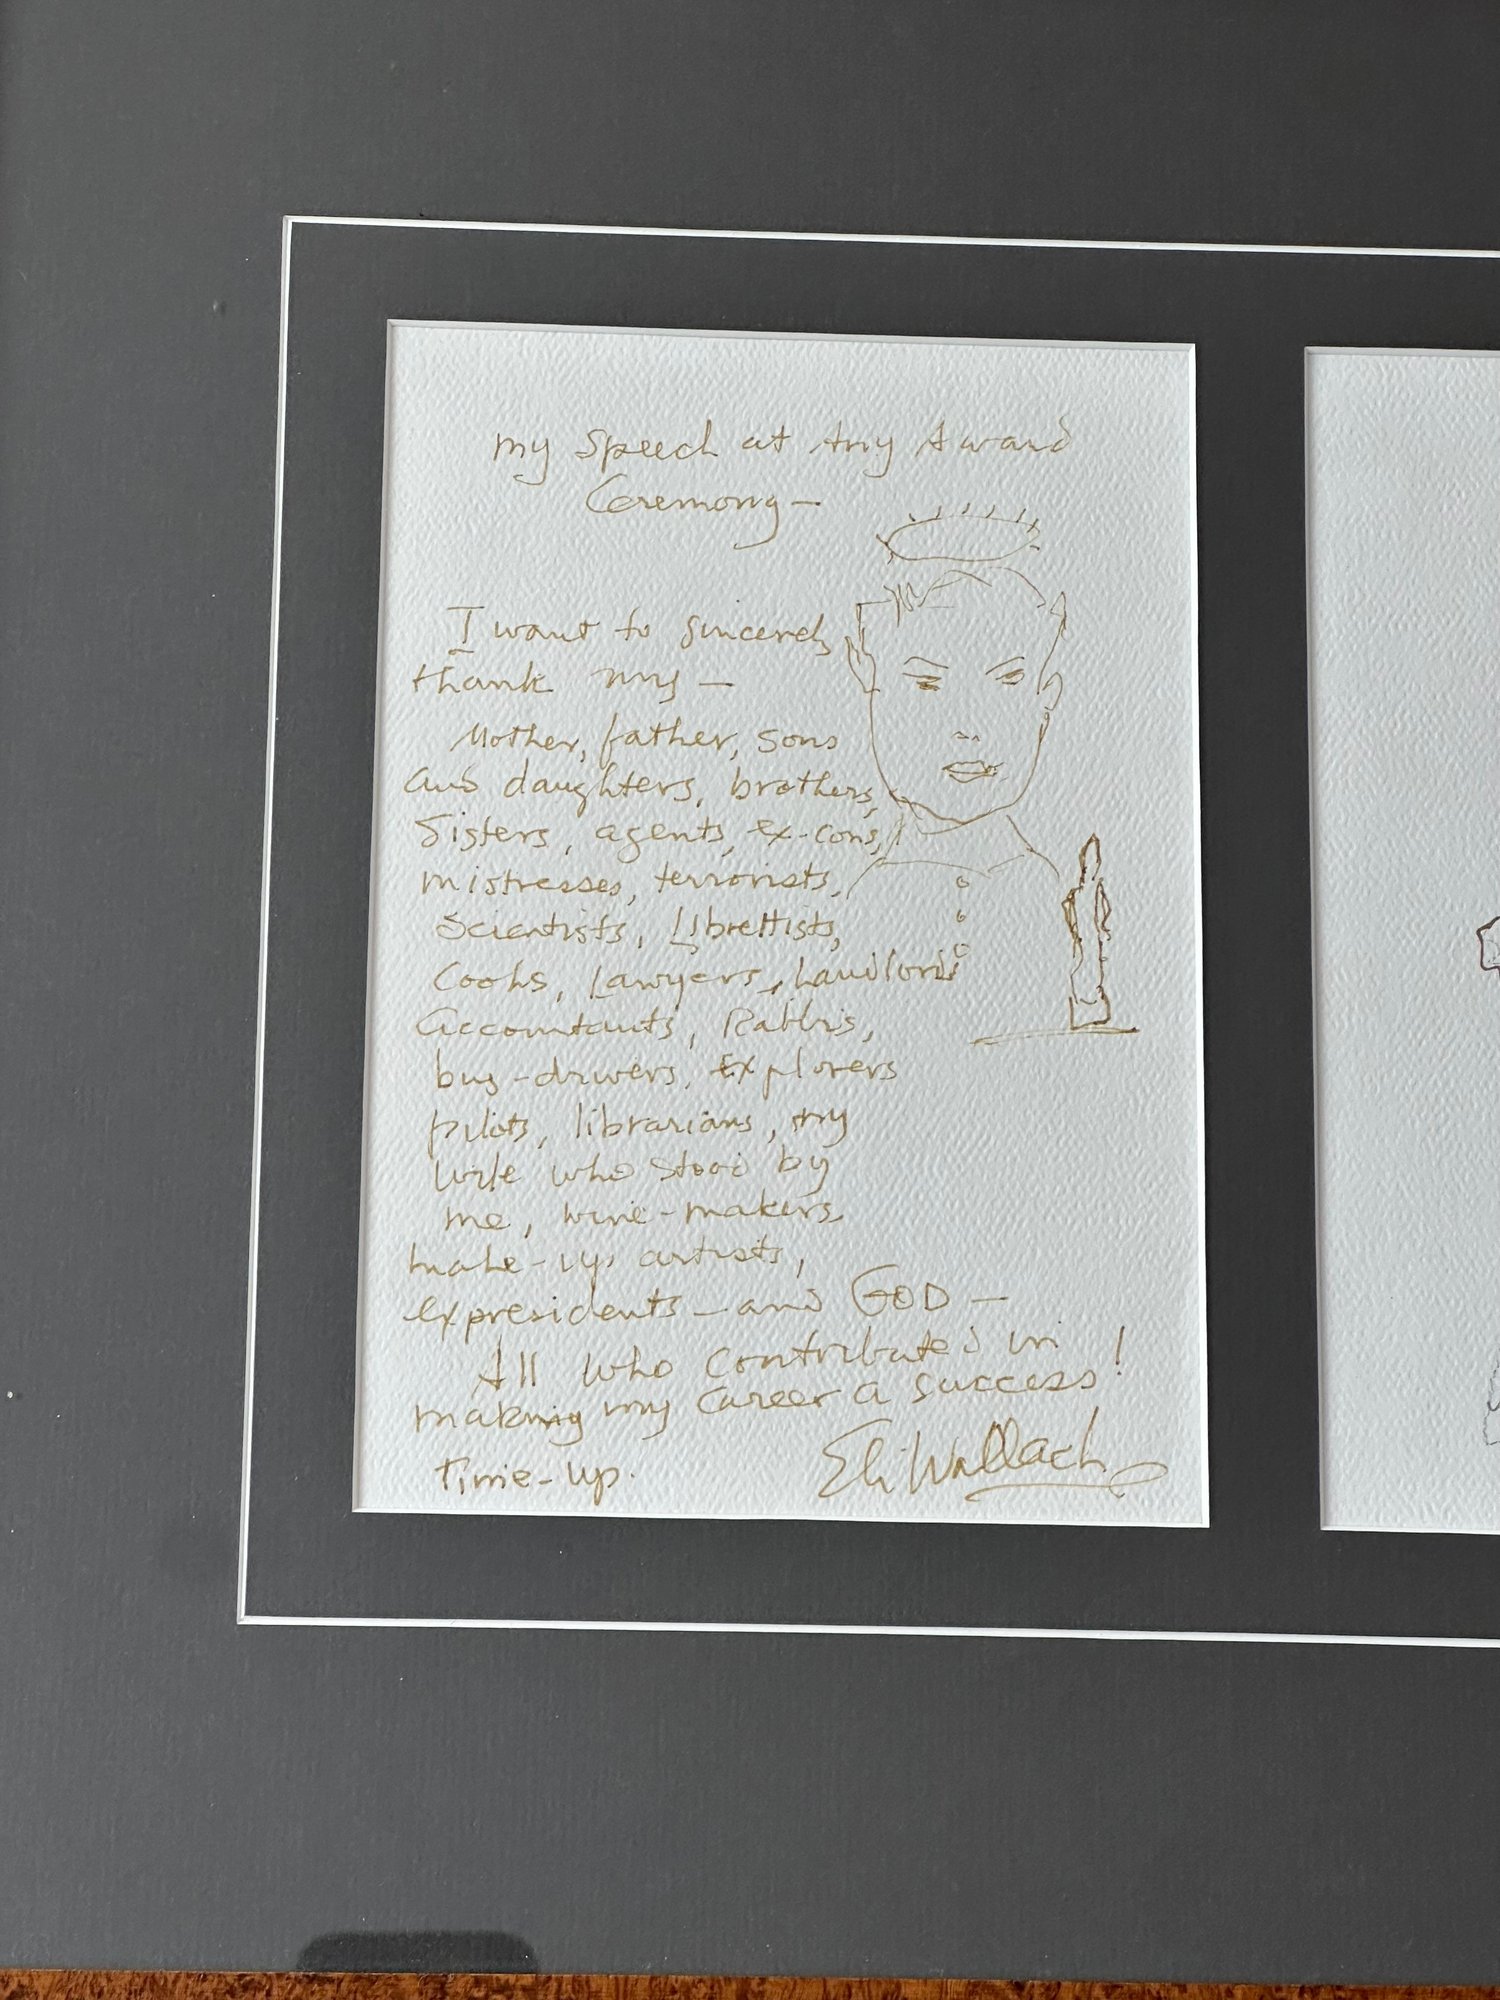 my speech at Any Award
Ceremony—
I want to sincerely
thank my—
Mother, father, sons
and daughters, brothers,
Sisters, agents, ex-cons,
mistresses, terrorists,
Scientists, Librettists,
Cooks, Lawyers, Landlords
Accountants, Rabbis,
bus-drivers, Explorers
pilots, librarians, my
wife who stood by
me, wine-makers,
make-up artists,
expresidents—and GOD—
All who contributed in
making my career a success!
Time-up.
Eli Wallach